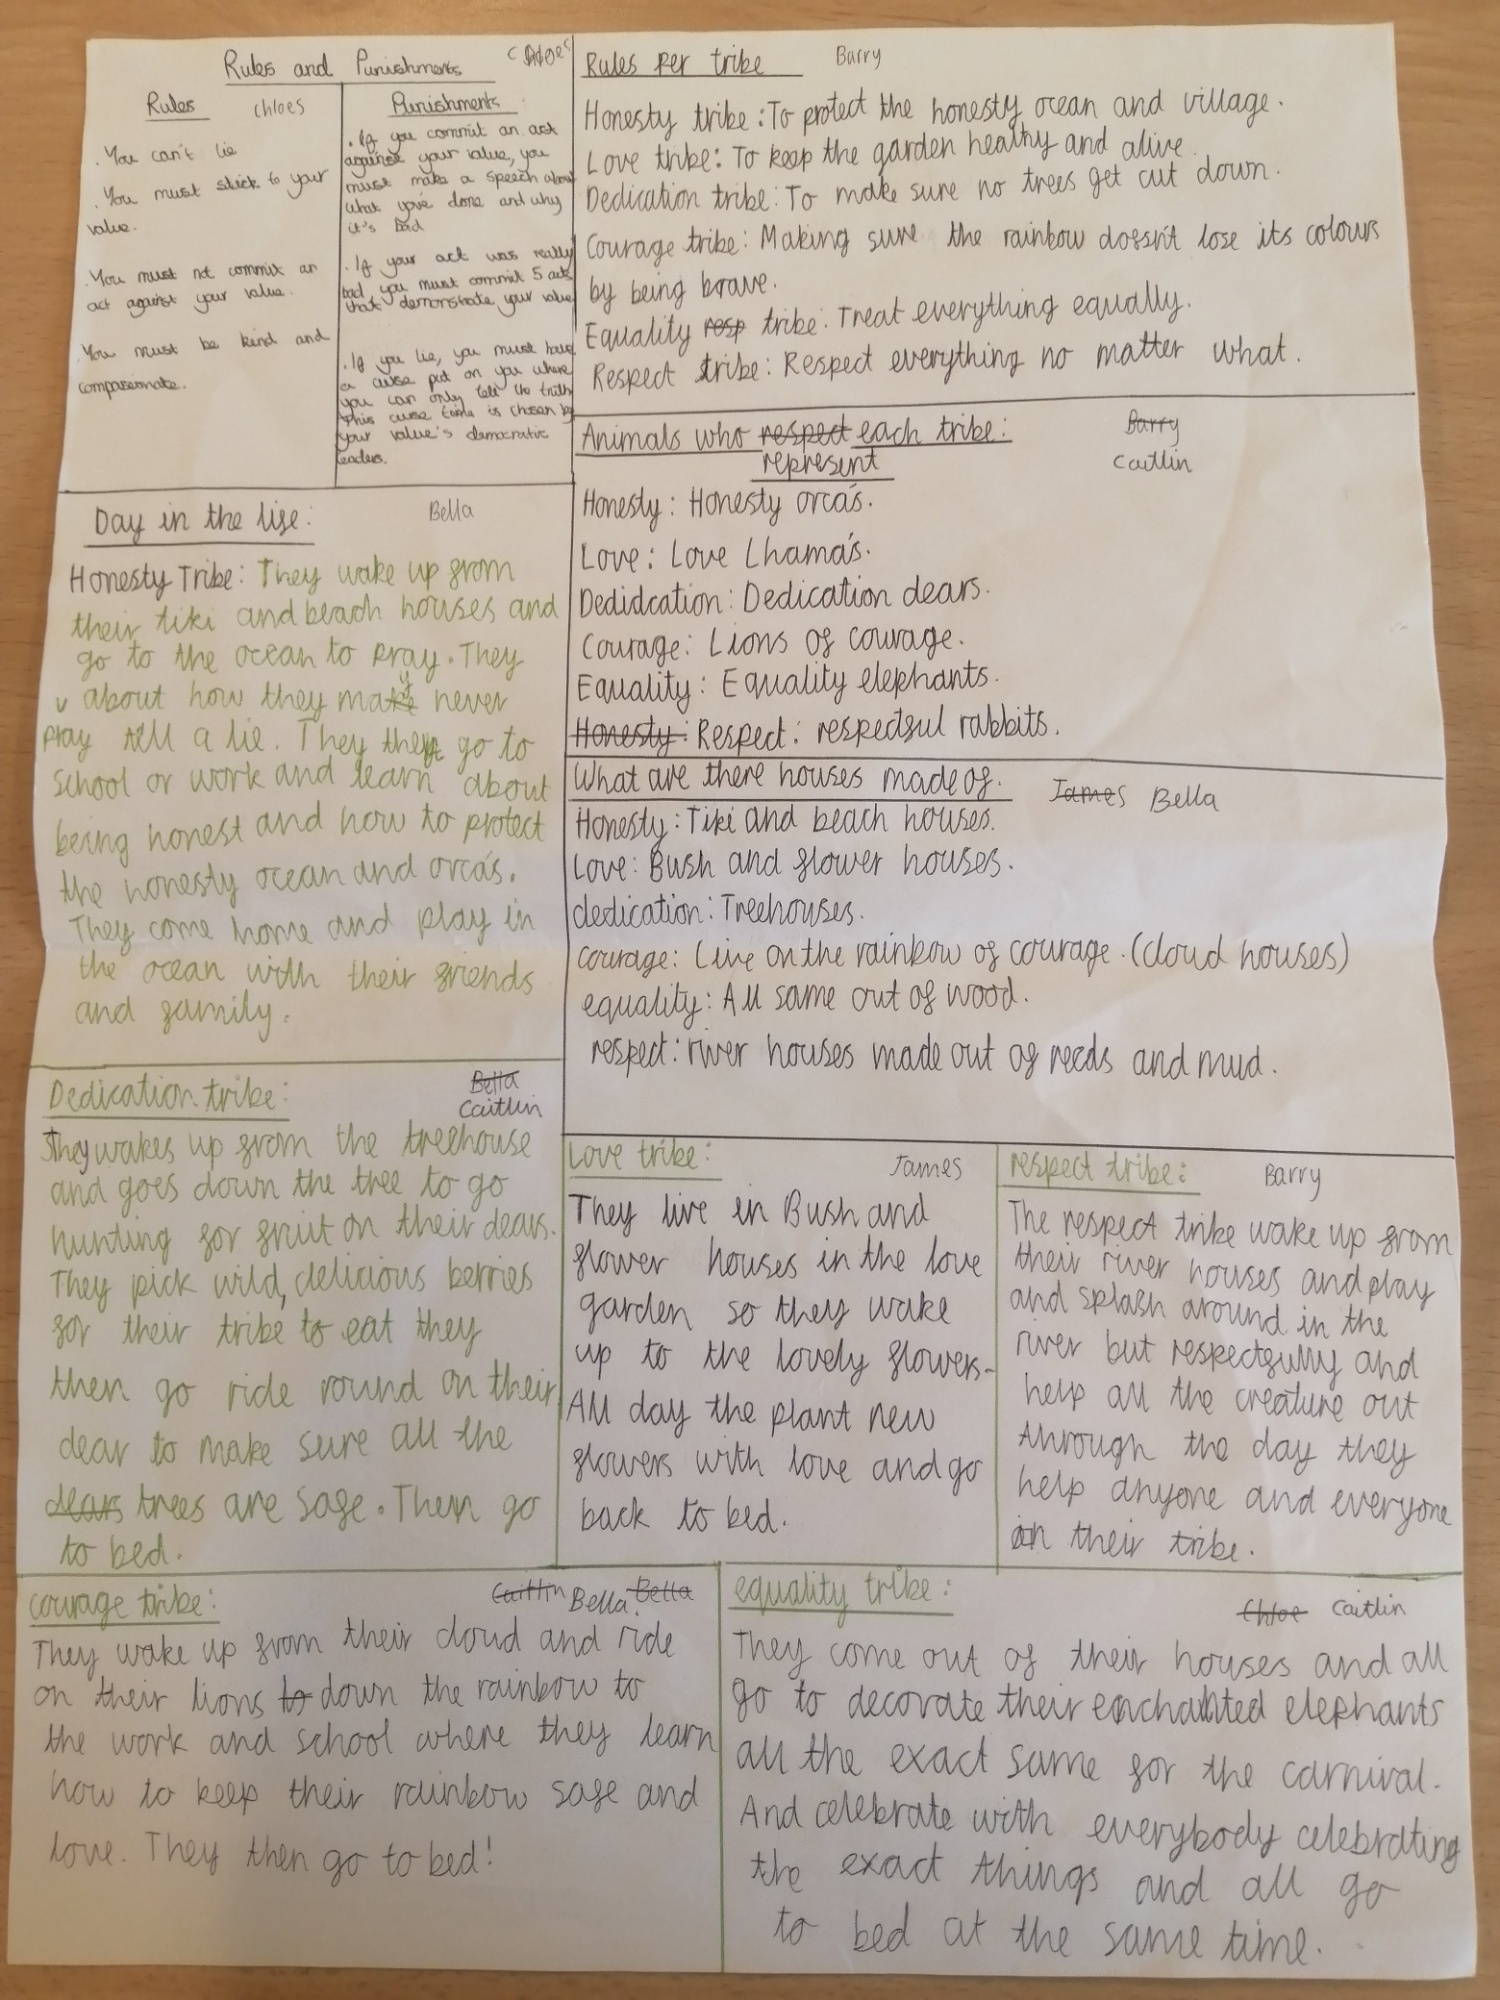 Rules and Punishments Chloes
Rules chloes
. You can't lie
. You must stick to your
value.
. You must not commit an
act against your value.
. You must be kind and
compassionate.
Punishments
. If you commit an act
against your value, you
must make a speech about
what you've done and why
it's bad
. If your act was really
bad you must commit 5 acts
that demonstrate your value
. If you lie, you must have
a curse put on you where
you can only tell the truth
This curse is chosen by
your value's democratic
leaders.
Rules per tribe Barry
Honesty tribe: To protect the honesty ocean and village.
Love tribe: To keep the garden healthy and alive.
Dedication tribe: To make sure no trees get cut down.
Courage tribe: Making sure the rainbow dossn't lose its colours
by being brave.
Equality resp tribe: Treat everything equally.
Respect tribe: Respect everything no matter what.
Animals who respect each tribe: Barry
represent Caitlin
Honesty: Honesty orca's.
Love: Love Lhama's.
Dedidcation: Dedication dears.
Courage: Lions of courage.
Equality: Equality elephants.
Honesty: Respect: respectful rabbits.
What are there houses made of. James Bella
Honesty: Tiki and beach houses.
Love: Bush and flower houses.
dedication: Treehouses.
courage: Live on the rainbow of courage. (cloud houses)
equality: All same out of wood.
respect: river houses made out of reeds and mud.
Day in the life: Bella
Honesty Tribe: They wake up from
their tiki and beach houses and
go to the ocean to pray. They
pray about how they may never
tell a lie. They then go to
school or work and learn about
being honest and how to protect
the honesty ocean and orca's.
They come home and play in
the ocean with their friends
and family.
Dedication tribe: Bella
Caitlin
They wakes up from the treehouse
and goes down the tree to go
hunting for fruit on their dears.
They pick wild, delicious berries
for their tribe to eat they
then go ride round on their
dear to make sure all the
dears trees are safe. Then go
to bed.
Love tribe: James
They live in Bush and
flower houses in the love
garden so they wake
up to the lovely flowers-
All day the plant new
flowers with love and go
back to bed.
respect tribe: Barry
The respect trike wake up from
their river houses and play
and splash around in the
river but respectfully and
help all the creature out
through the day they
help anyone and everyone
in their tribe.
courage tribe: Caitlin Bella. Bella
They wake up from their cloud and ride
on their lions to down the rainbow to
the work and school where they learn
how to keep their rainbow safe and
love. They then go to bed!
equality tribe: Chloe Caitlin
They come out of their houses and all
go to decorate their enchanted elephants
all the exact same for the carnival.
And celebrate with everybody celebrating
the exact things and all go
to bed at the same time.